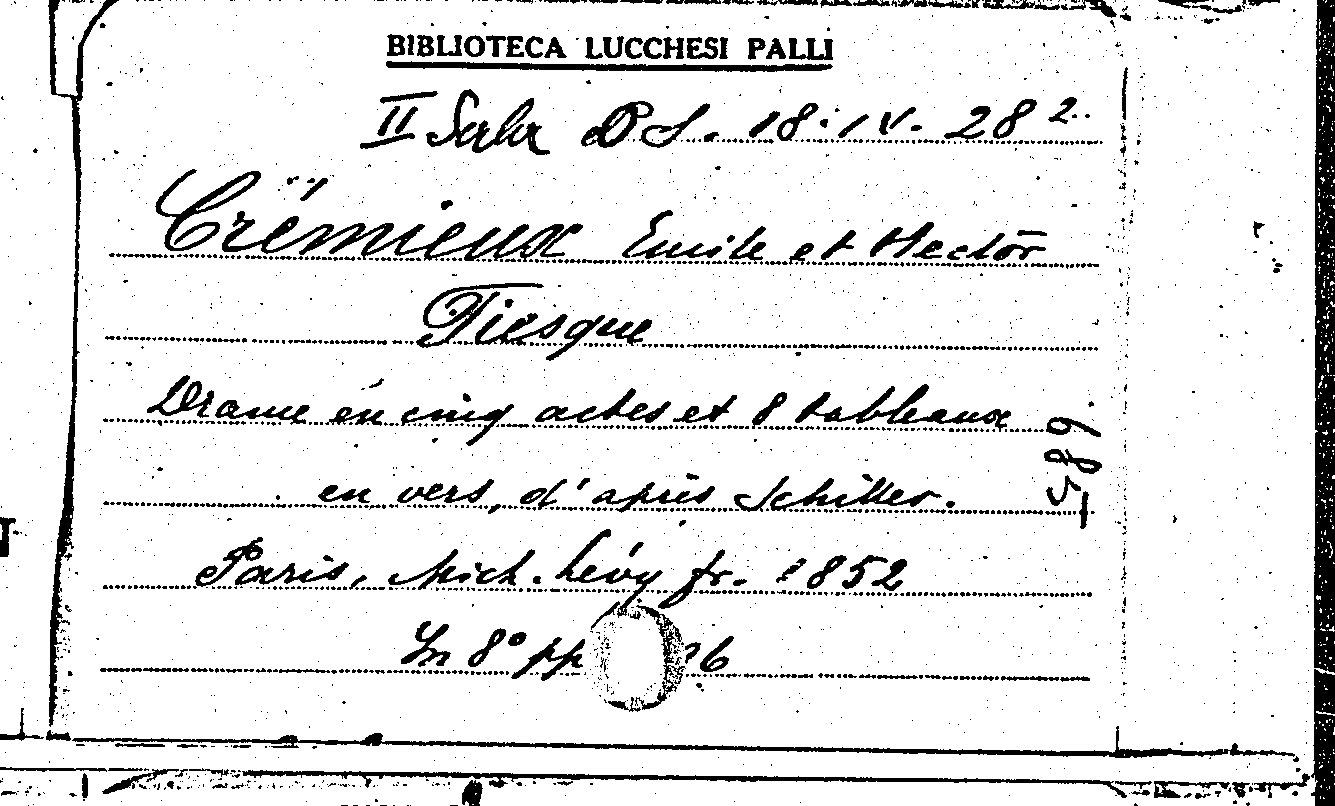 BIBLIOTECA LUCCHESI PALLI
II Sala DS. 18. IV. 28 2.
Crémieux Emile et Hector
Fiesque
Drame en cinq actes et 8 tableaux
en vers, d'après Schiller.
Paris, Mich. Lévy fr. 1852
In 8° pp 36
589